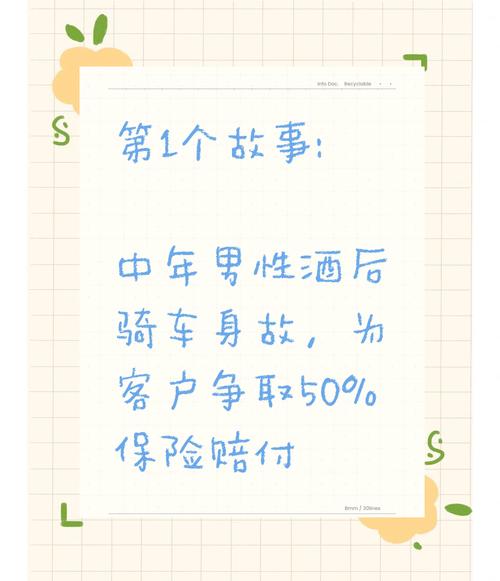 Info Doc. Recyclable
第1个故事:
中年男性酒后
骑车身故,为
客户争取50%
保险赔付
8mm / 30lines